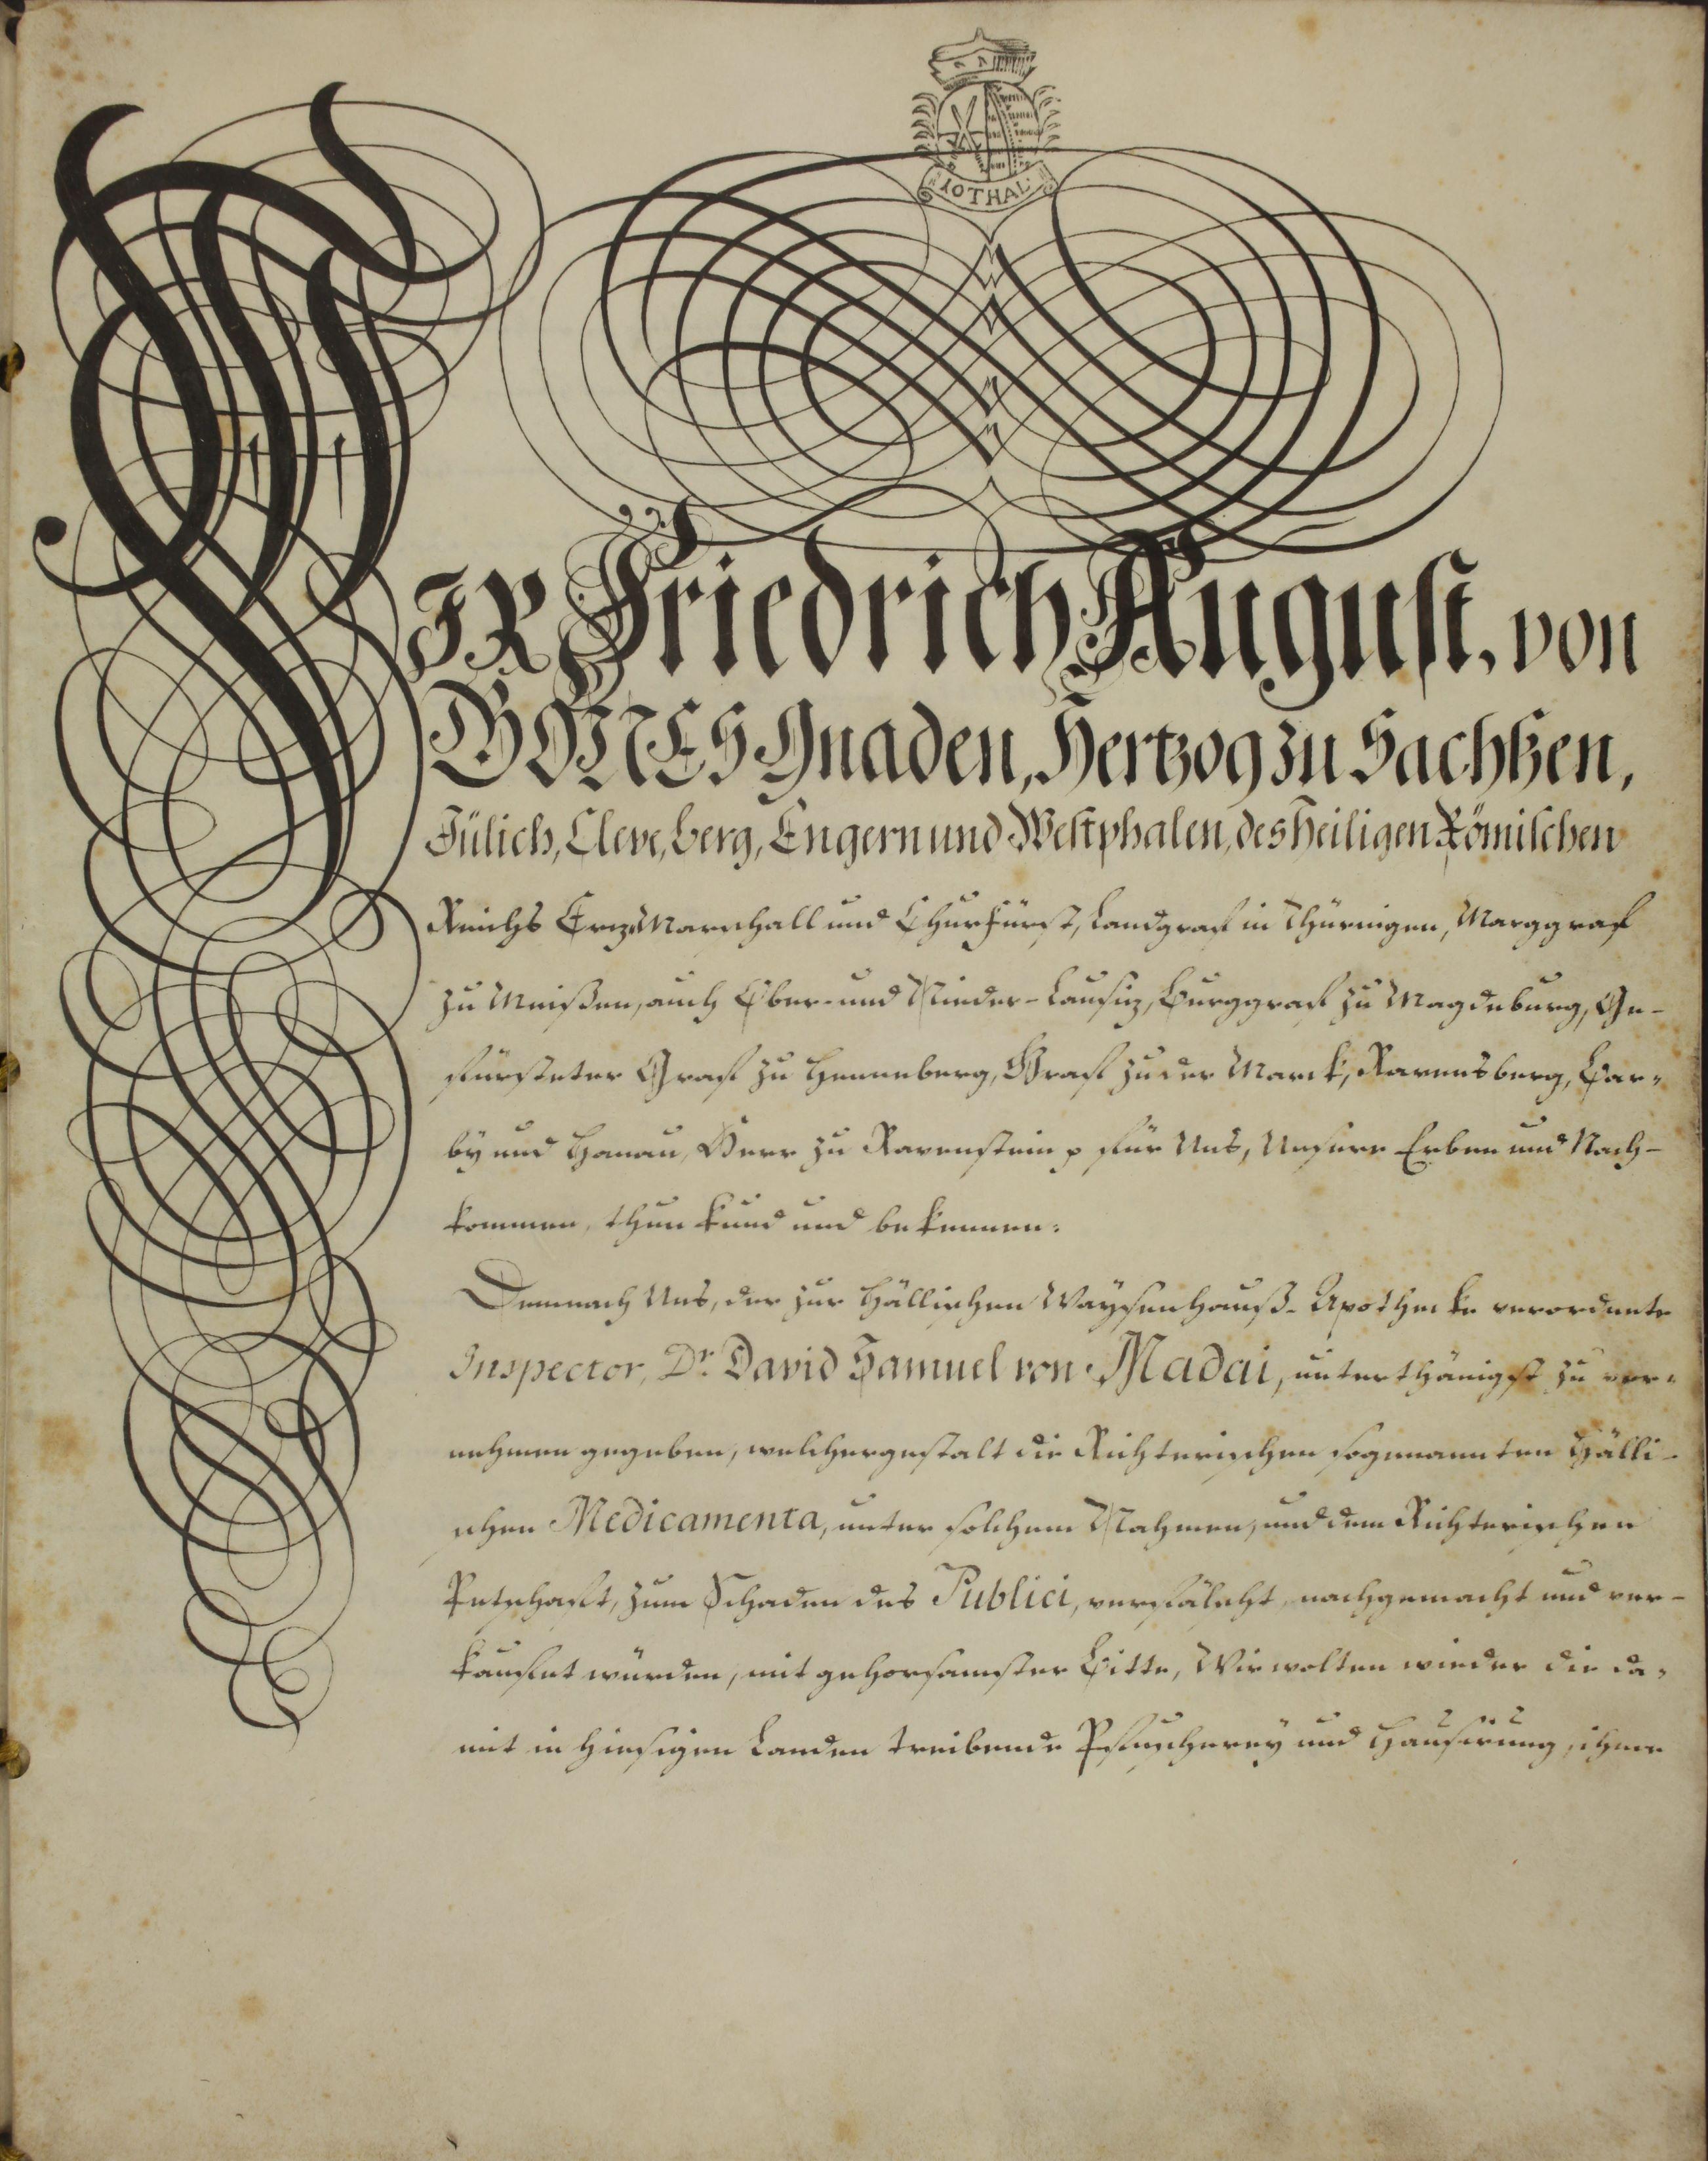 10 THAL.
WIR Friedrich August, von
GOTTES Gnaden, Hertzog zu Sachßen,
Jülich, Cleve, Berg, Engern und Westphalen, des Heiligen Römischen
Reichs Erz-Marschall und Churfürst, Landgraf in Thüringen, Marggraf
zu Meißen, auch Ober- und Nieder-Lausiz, Burggraf zu Magdeburg, Ge-
fürsteter Graf zu Henneberg, Graf zu der Marck, Ravensberg, Bar-
by und Hanau, Herr zu Ravenstein p für Uns, Unsere Erben und Nach-
kommen, thun kund und bekennen:
Demnach Uns, der zur Hällischen Waysenhauß-Apothecke verordnete
Inspector, Dr. David Samuel von Madai, unterthänigst zu ver-
nehmen gegeben, welchergestalt die Richterischen sogenannten Hälli-
schen Medicamenta, unter solchem Nahmen, und dem Richterischen
Petschaft, zum Schaden des Publici, verfälscht, nachgemacht und ver-
kaufet würden, mit gehorsamster Bitte, Wir wolten wieder die da-
mit in hiesigen Landen treibende Pfuscherey und Hausirung, ihme